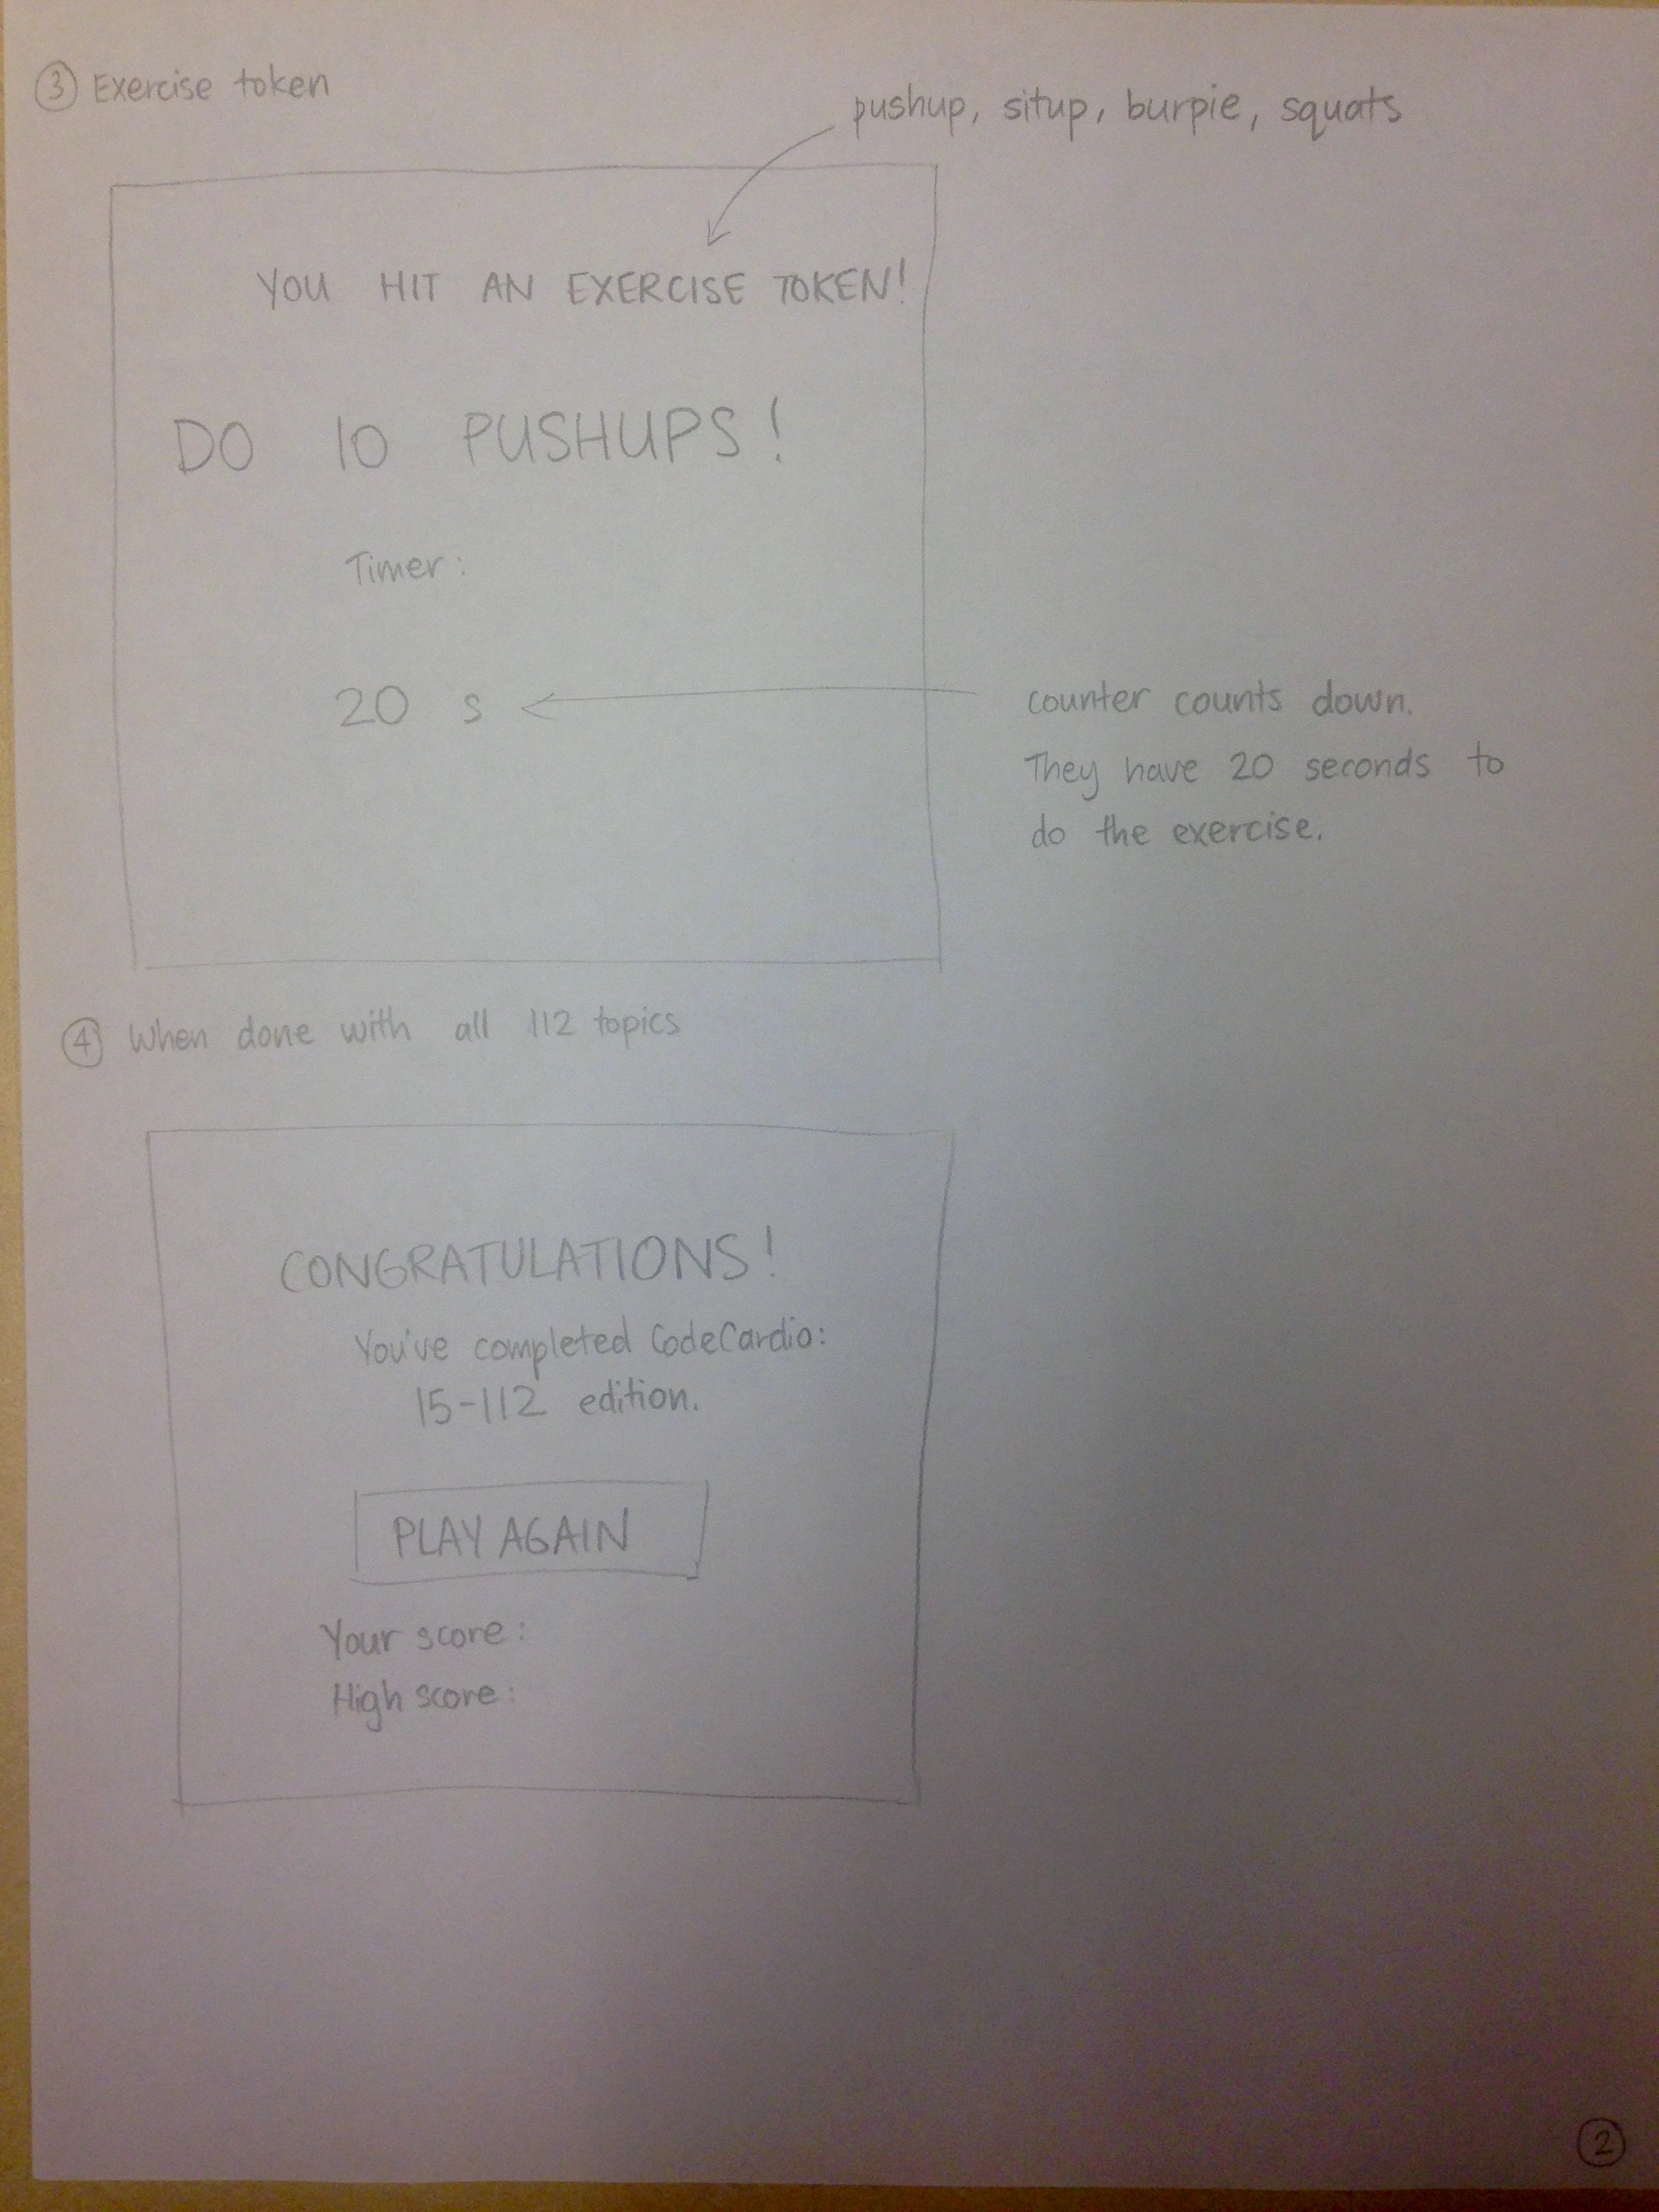 3 Exercise token
pushup, situp, burpie, squats
YOU HIT AN EXERCISE TOKEN!
DO 10 PUSHUPS!
Timer:
20 s
counter counts down.
They have 20 seconds to
do the exercise.
4 When done with all 112 topics
CONGRATULATIONS!
You've completed CodeCardio:
15-112 edition.
PLAY AGAIN
Your score:
High score:
2